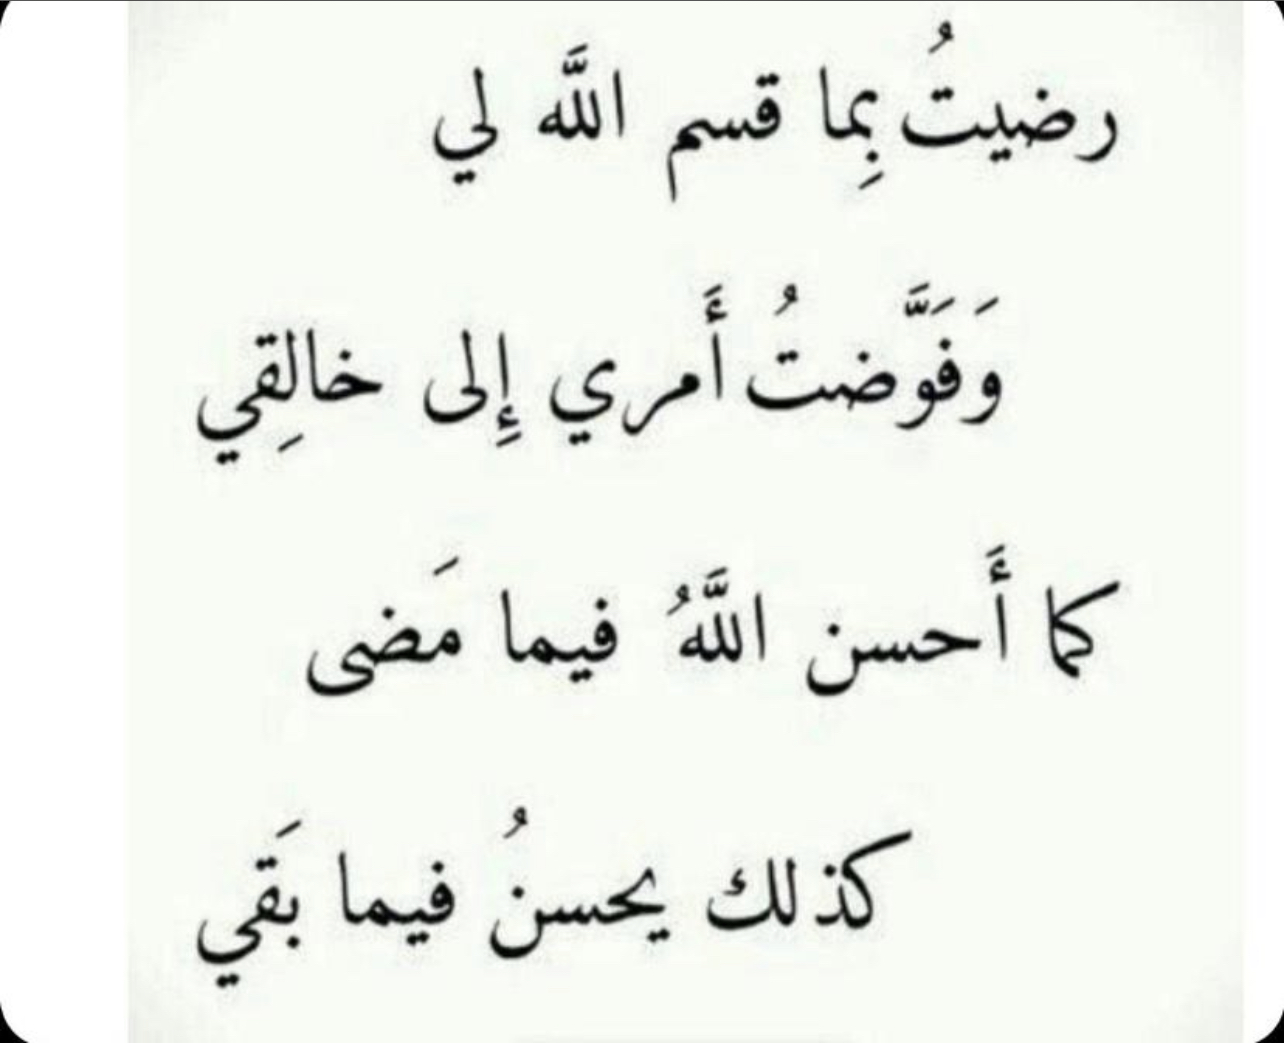 رضيتُ بِما قسم اللَّه لي
وَفَوَّضتُ أَمري إِلى خالِقي
كما أَحسن اللَّهُ فيما مَضى
كذلك يحسنُ فيما بَقي